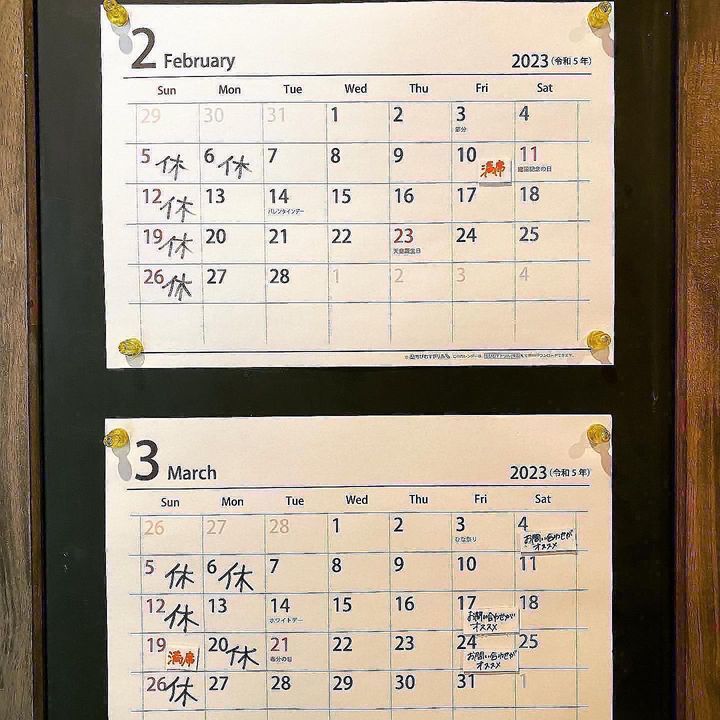 2 February 2023(令和5年)
Sun Mon Tue Wed Thu Fri Sat
29 30 31 1 2 3 4
節分
5 休 6 休 7 8 9 10 満席 11
建国記念の日
12 休 13 14 15 16 17 18
バレンタインデー
19 休 20 21 22 23 24 25
天皇誕生日
26 休 27 28 1 2 3 4
3 March 2023(令和5年)
Sun Mon Tue Wed Thu Fri Sat
26 27 28 1 2 3 4
ひな祭り
お問い合わせが
オススメ
5 休 6 休 7 8 9 10 11
12 休 13 14 15 16 17 18
ホワイトデー
お問い合わせが
オススメ
19 満席 20 休 21 22 23 24 25
春分の日
お問い合わせが
オススメ
26 休 27 28 29 30 31 1